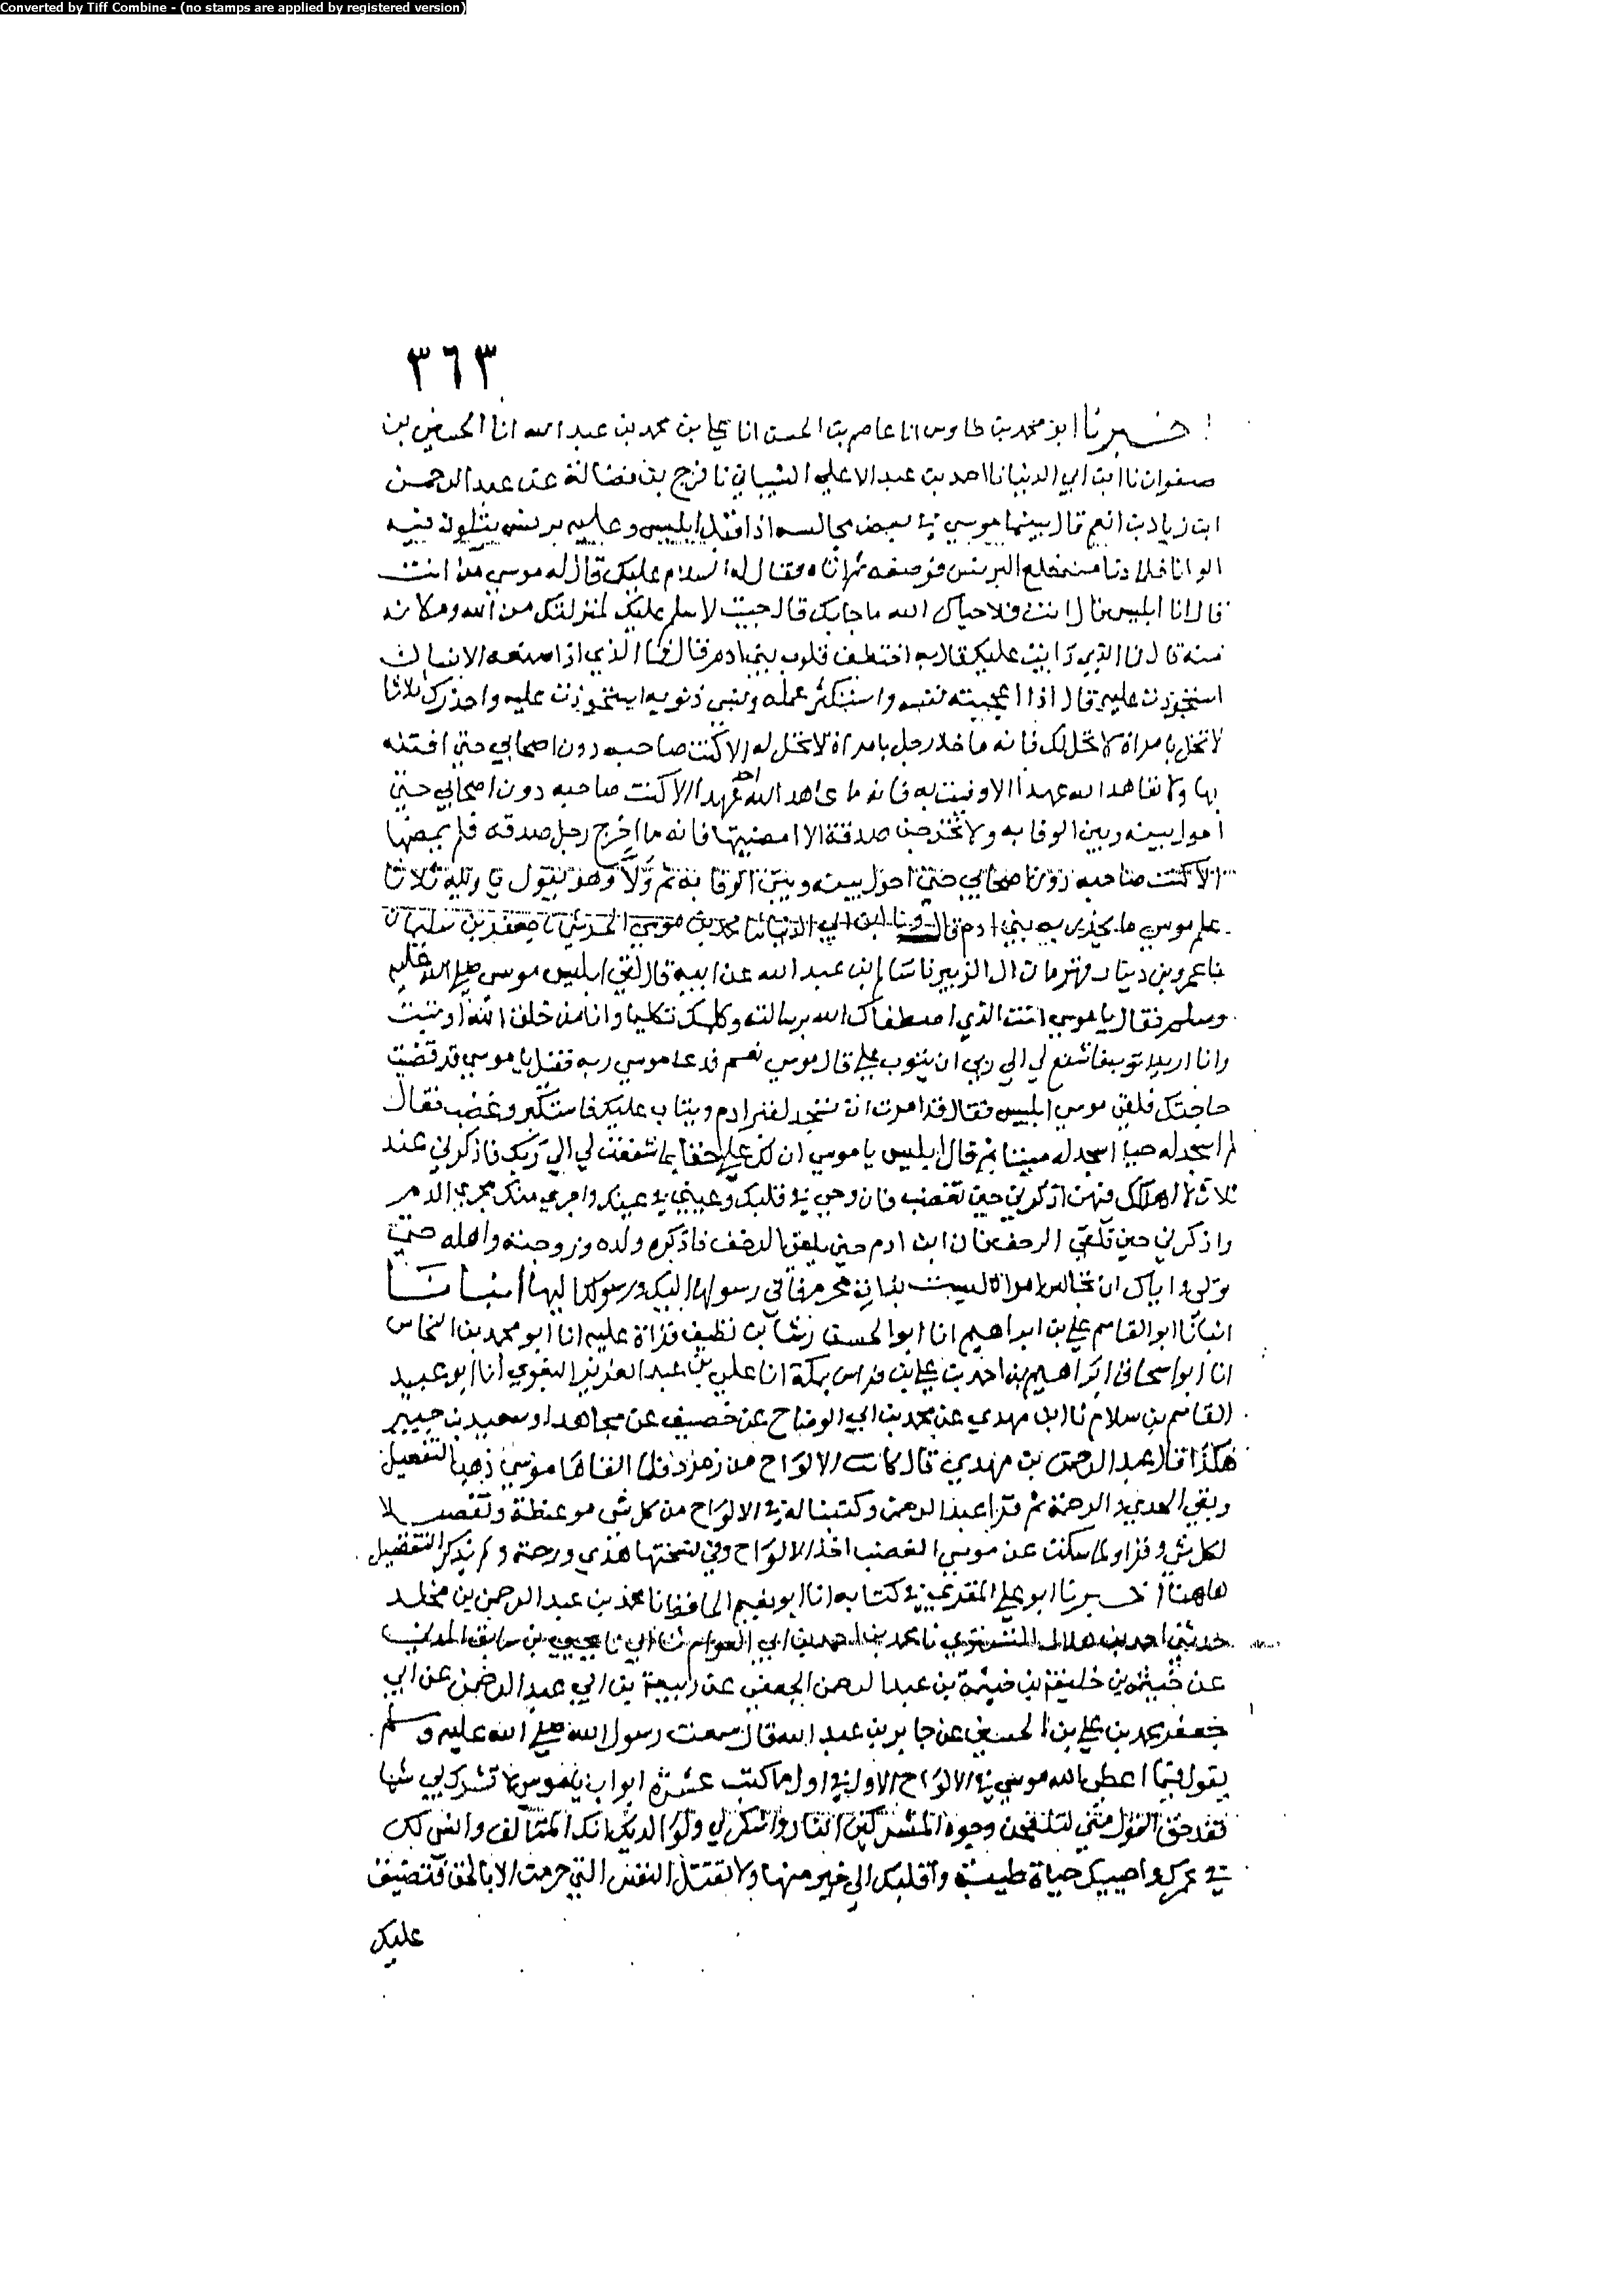 Converted by Tiff Combine - (no stamps are applied by registered version)
٣٦٣
اخبرنا ابو محمد بن طاوس انا عاصم بن الحسن انا علي بن محمد بن عبد الله انا الحسين بن
صفوان نا ابن ابي الدنيا نا احمد بن عبد الاعلى الشيباني نا فرج بن فضالة عن عبد الرحمن
ابن زياد بن انعم قال بينما موسى في بعض مجالسه اذ اقبل ابليس وعليه برنس يتلون فيه
الوانا فلما دنا منه خلع البرنس فوضعه ثم اتاه فقال له السلام عليك قال له موسى من انت
قال انا ابليس قال انت فلا حياك الله ما جا بك قال جيت لاسلم عليك لمنزلتك من الله ومكانه
منه قال ما الذي رايت عليك قال به اختطف قلوب بني ادم قال فما الذي اذا صنعه الانسان
استحوذت عليه قال اذا اعجبته نفسه واستكثر عمله ونسي ذنوبه استحوذت عليه واحذرك ثلاثا
لا تخل بامراة لا تحل لك فانه ما خلا رجل بامراة لا تحل له الا كنت صاحبه دون اصحابي حتى افتنه
بها ولا تعاهد الله عهدا الا وفيت به فانه ما عاهد الله احد عهدا الا كنت صاحبه دون اصحابي حتى
احول بينه وبين الوفا به ولا تخرجن صدقة الا امضيتها فانه ما اخرج رجل صدقه فلم يمضها
الا كنت صاحبه دون اصحابي حتى احول بينه وبين الوفا به ثم ولا وهو يقول يا ويله ثلاثا
علم موسى ما يحذر به بني ادم قال ونا ابن ابي الدنيا نا محمد بن موسى الحرشي نا جعفر بن سليمان
نا عمرو بن دينار قهرمان ال الزبير نا سالم بن عبد الله عن ابيه قال لقي ابليس موسى صلى الله عليه
وسلم فقال يا موسى انت الذي اصطفاك الله برسالته وكلمك تكليما وانا من خلق الله اذنبت
وانا اريد توبه فاشفع لي الى ربي ان يتوب علي قال موسى نعم فدعا موسى ربه فقيل يا موسى قد قضيت
حاجتك فلقي موسى ابليس فقال قد امرت ان تسجد لقبر ادم ويتاب عليك فاستكبر وغضب فقال
لم اسجد له حيا اسجد له ميتا ثم قال ابليس يا موسى ان لك علي حقا بما شفعت لي الى ربك فاذكرني عند
ثلاث لا اهلكك فيهن اذكرني حين تغضب فان وحي في قلبك وعيني في عينك واجري منك مجرى الدم
واذكرني حين تلقى الزحف فان ابن ادم حين يلقى الزحف فاذكره ولده وزوجته واهله حتى
يولي واياك ان تجالس امراة ليست بذات محرم فاني رسولها اليك ورسولك اليها انبانا
انبانا ابو القاسم علي بن ابراهيم انا ابو الحسن رشا بن نظيف قراة عليه انا ابو محمد بن النحاس
انا ابو اسحاق ابراهيم بن احمد بن علي بن فراس بمكة انا علي بن عبد العزيز البغوي انا ابو عبيد
القاسم بن سلام نا ابن مهدي عن محمد بن ابي الوضاح عن خصيف عن مجاهد او سعيد بن جبير
هكذا قال عبد الرحمن بن مهدي قال كانت الالواح من زمرد فلما القاها موسى ذهب التفصيل
وبقي الهدى والرحمة ثم قرا عبد الرحمن وكتبنا له في الالواح من كل شي موعظة وتفصيلا
لكل شي وقرا ولما سكت عن موسى الغضب اخذ الالواح وفي نسختها هدى ورحمة ولم يذكر التفصيل
هاهنا اخبرنا ابو علي المقري في كتابه انا ابو نعيم الحافظ نا محمد بن عبد الرحمن بن مخلد
حدثني احمد بن هلال التستري نا محمد بن احمد بن ابي العوام نا ابي نا يحيى بن سابق المدني
عن خيثمة بن خليفة بن خيثمة بن عبد الرحمن الجعفي عن ربيعة بن ابي عبد الرحمن عن ابي
جعفر محمد بن علي بن الحسين عن جابر بن عبد الله قال سمعت رسول الله صلى الله عليه وسلم
يقول فيما اعطى الله موسى في الالواح الاول في اول ما كتب عشرة ابواب يا موسى لا تشرك بي شيا
فقد حق القول مني لتلفحن وجوه المشركين النار واشكر لي ولوالديك اقك المتالف وانسي لك
في عمرك واحييك حياة طيبة واقلبك الى خير منها ولا تقتل النفس التي حرمت الا بالحق فتضيق
عليك